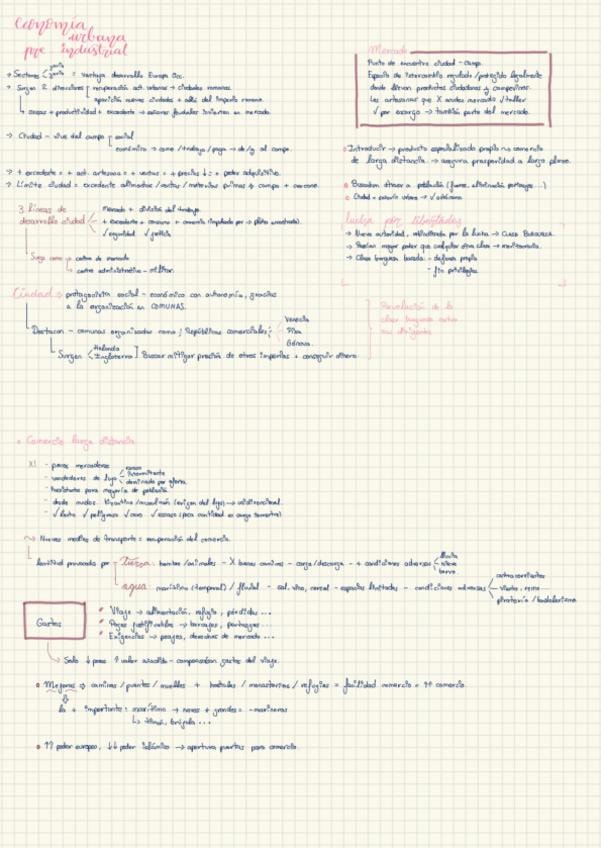 Economía
urbana
pre industrial
→ Sectores = ventaja desarrollo Europa Occ.
→ Surgen 2 direcciones recuperación act. urbana + ciudades romanas.
aparición nuevas ciudades + allá del imperio romano.
causas + productividad + excedente → señores feudales invierten en mercado.
→ Ciudad - vive del campo social
económico → come/trabaja/paga → de/g al campo.
→ + excedente = + act. artesana = + ventas = + precios ↓ = + poder adquisitivo.
→ Límite ciudad = excedente alimentos/rutas/materias primas → campo + cercano.
3 líneas de
desarrollo ciudad
mercado + división del trabajo.
+ excedente + consumo + comercio (impulsado por → plata
✓ seguridad ✓ justicia
Surge como → centro de mercado
→ centro administrativo - militar.
Ciudad → protagonista social - económico con autonomía, gracias
a la organización en COMUNAS.
Destacan - comunas organizadas como Repúblicas comerciales:
Venecia
Pisa
Génova.
Surgen Holanda
Inglaterra Buscar mitigar presión de otros imperios + conseguir dinero.
Mercado
Punto de encuentro ciudad - campo.
Espacio de intercambio regulado/protegido legalmente
donde llevan productos ciudadanos y campesinos.
Los artesanos que X acuden mercado ✓ taller
✓ por encargo → también parte del mercado.
Introducir → producto especializado propio en comercio
de larga distancia → asegura prosperidad a largo plazo.
Buscaban atraer a población (fueros, eliminación portazgos...)
Ciudad
lucha por libertades
→ Nueva autoridad, influenciada por la lucha → CLASE BURGUESA.
→ Tenían mayor poder que cualquier otra clase → monetaria.
→ Clase burguesa basada: - defensa propia
- fin privilegios.
Revolución de la
clase burguesa contra
sus dirigentes
Comercio larga distancia
XI - pocos mercaderes
- vendedores de lujo
intermitente
- desde mundos bizantino/musulmán (origen del lujo) → unidireccional.
✓ lento ✓ peligroso ✓ caro ✓ escaso (poca cantidad x carga terrestre)
Nuevos medios de transporte = recuperación del comercio.
lentitud provocada por
Tierra: hombres/animales - X buenos caminos - carga/descarga - + condiciones adversas
lluvia
nieve
agua marítimo (temporal) / fluvial - sal, vino, cereal - espacios limitados - condiciones adversas
contracorrientes
viento
piratería/bandolerismo
Gastos
Viaje → alimentación, refugio, pérdidas...
Pagos justificables → barcajes, pontazgos...
Exigencias → peajes, derechos de mercado...
Solo ↓ peso ↑ valor añadido - compensaban gastos del viaje.
Mejoras → caminos/puentes/muelles + hostales/monasterios/refugios = facilidad comercio = ↑↑ comercio.
la + importante: marítimo → naves + grandes = - marineros
↳ timón, brújula...
↑↑ poder europeo, ↓↓ poder islámico → apertura puertas para comercio.